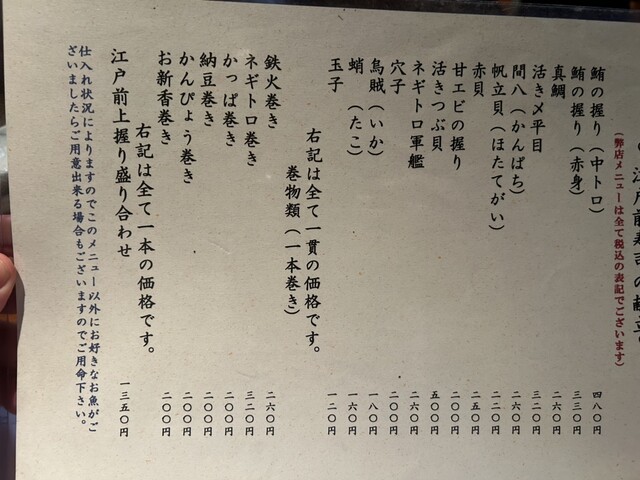 江戸前寿司の献立
(弊店メニューは全て税込の表記でございます)
鮪の握り(中トロ) 四八〇円
鮪の握り(赤身) 三三〇円
真鯛 二六〇円
活き〆平目 三二〇円
間八(かんぱち) 二六〇円
帆立貝(ほたてがい) 二二〇円
赤貝 二五〇円
甘エビの握り 二〇〇円
活きつぶ貝 五〇〇円
ネギトロ軍艦 二六〇円
穴子 二〇〇円
烏賊(いか) 一八〇円
蛸(たこ) 一六〇円
玉子 一二〇円
右記は全て一貫の価格です。
巻物類(一本巻き)
鉄火巻き 二六〇円
ネギトロ巻き 三二〇円
かっぱ巻き 二〇〇円
納豆巻き 二〇〇円
かんぴょう巻き 二〇〇円
お新香巻き 二〇〇円
右記は全て一本の価格です。
江戸前上握り盛り合わせ 一三五〇円
仕入れ状況によりますのでこのメニュー以外にお好きなお魚がご
ざいましたらご用意出来る場合もございますのでご用命下さい。